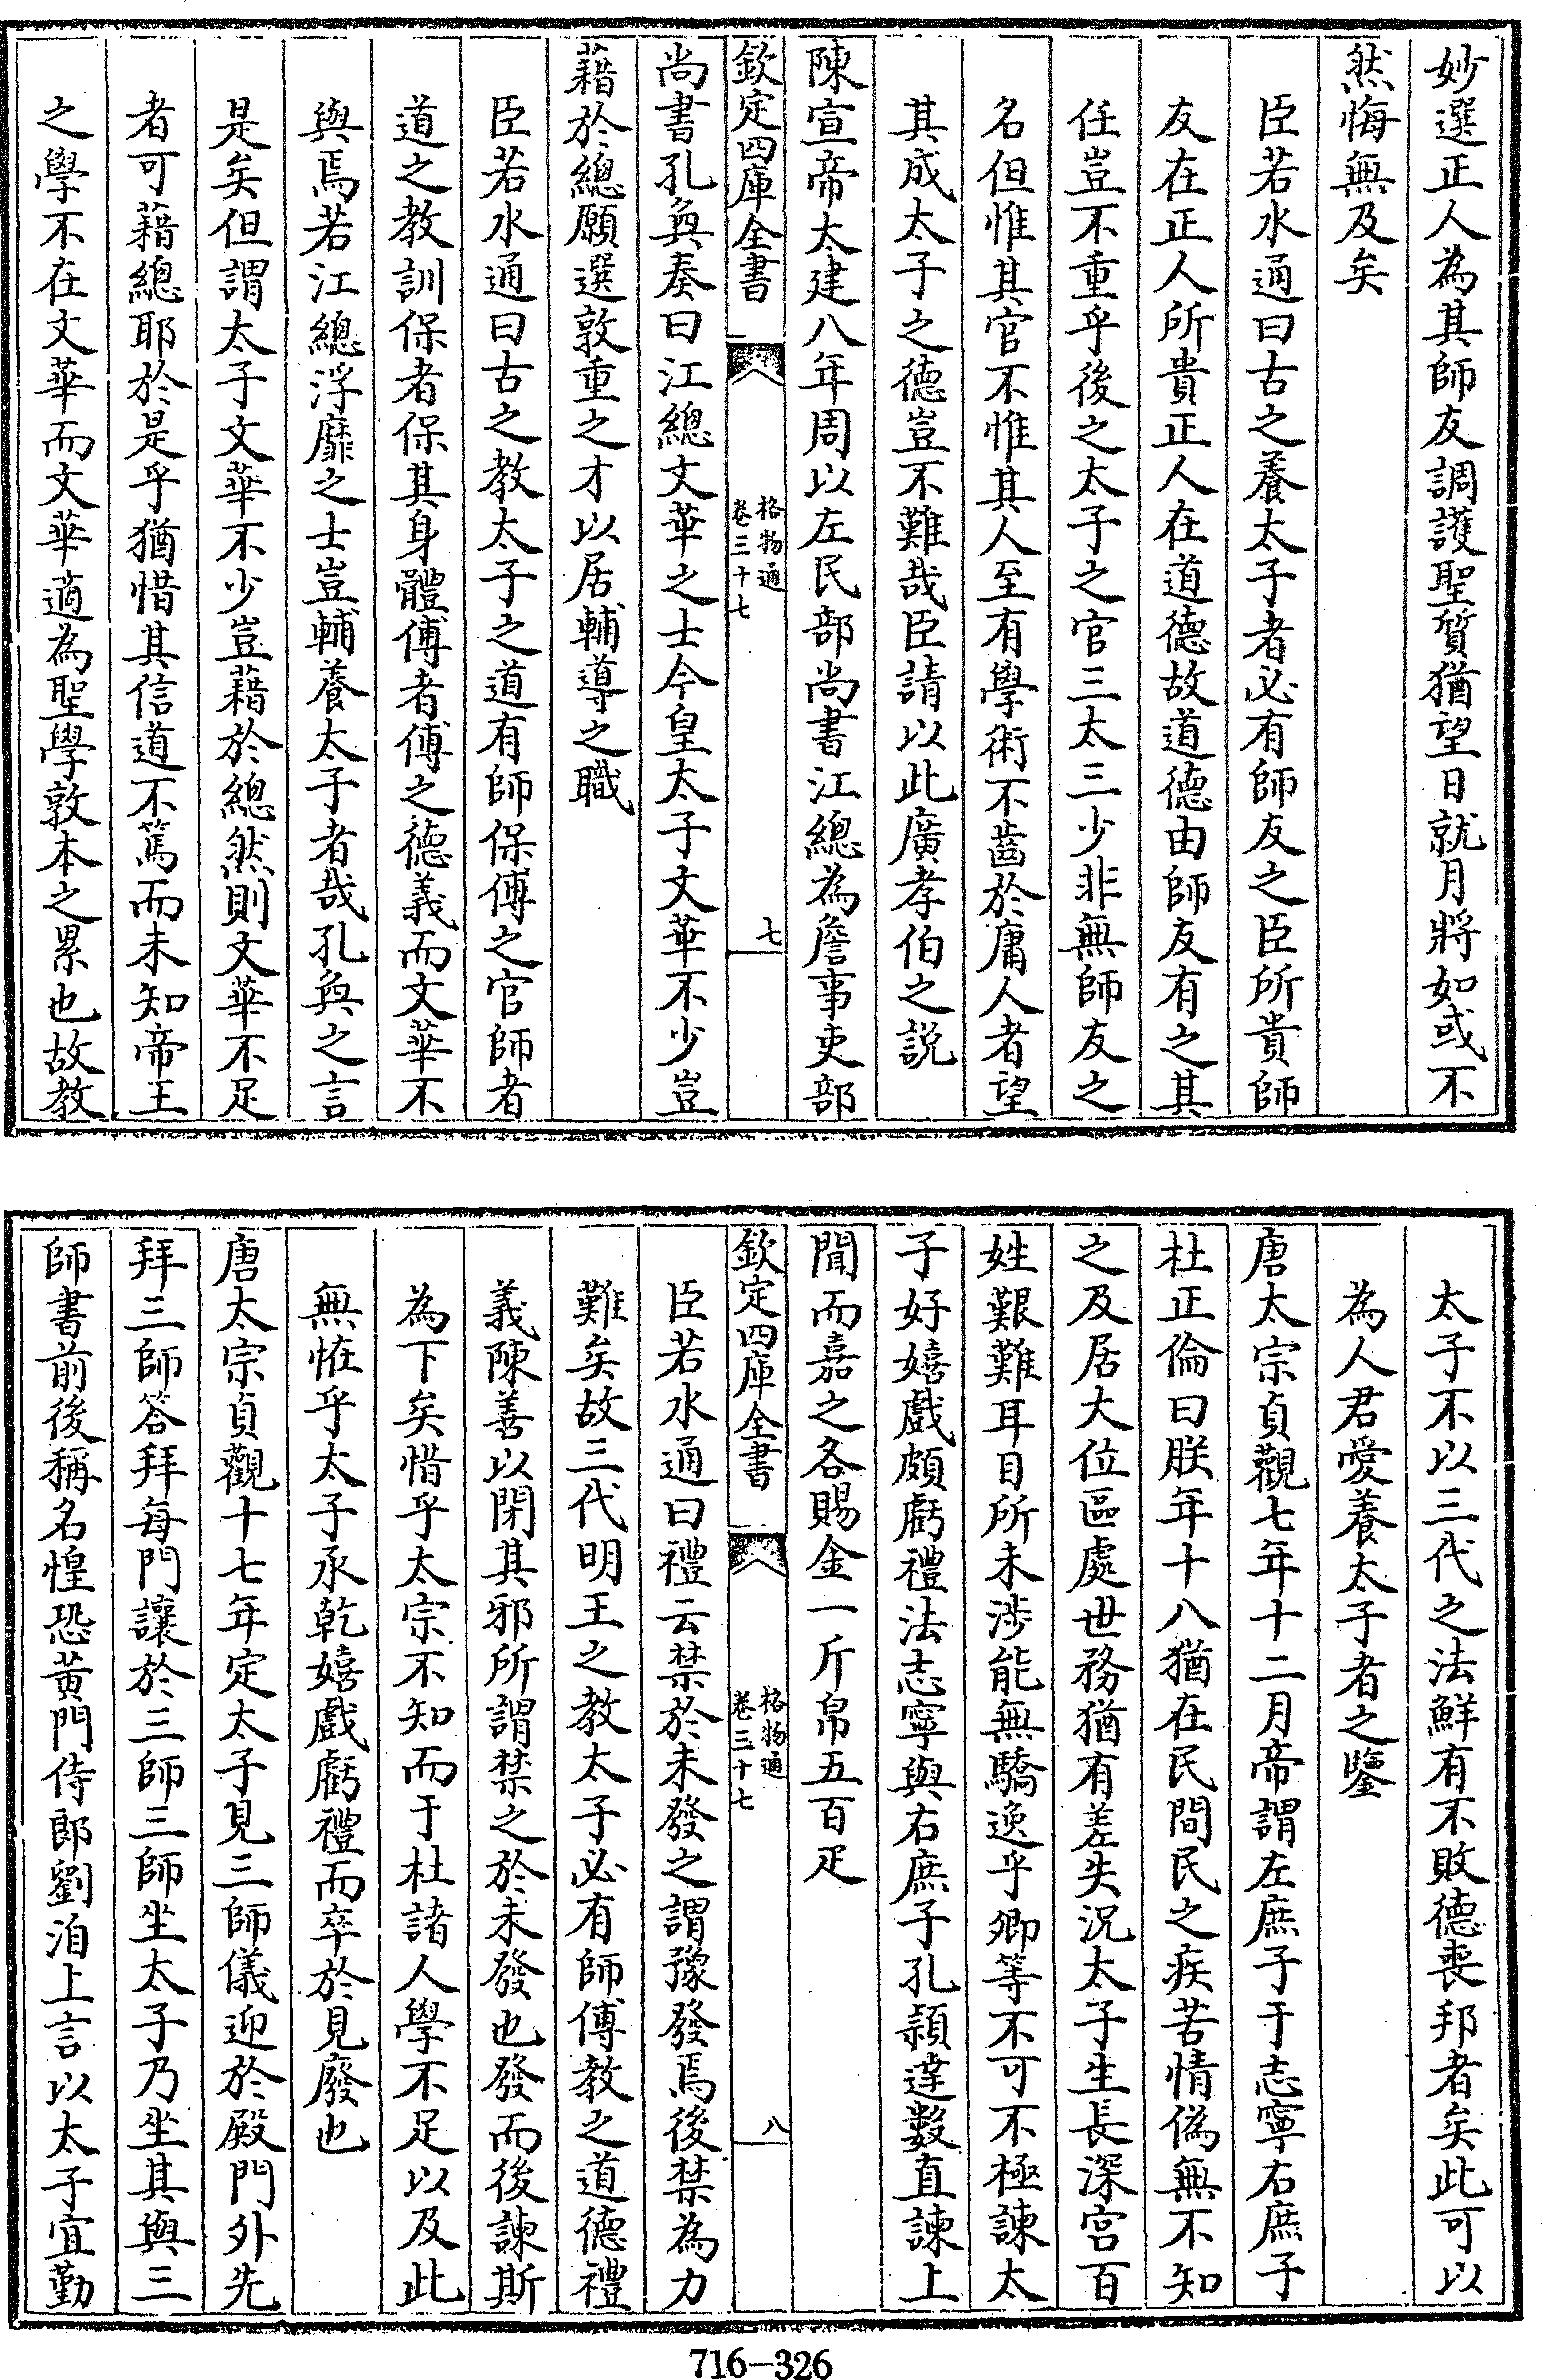 妙選正人為其師友調護聖質猶望日就月將如或不
然悔無及矣
臣若水通曰古之養太子者必有師友之臣所貴師
友在正人所貴正人在道德故道德由師友有之其
任豈不重乎後之太子之官三太三少非無師友之
名但惟其官不惟其人至有學術不齒於庸人者望
其成太子之德豈不難哉臣請以此廣孝伯之説
陳宣帝太建八年周以左民部尚書江總為詹事吏部
欽定四庫全書
格物通
卷三十七
七
尚書孔奐奏曰江總文華之士今皇太子文華不少豈
藉於總願選敦重之才以居輔導之職
臣若水通曰古之教太子之道有師保傅之官師者
道之教訓保者保其身體傅者傅之德義而文華不
與焉若江總浮靡之士豈輔養太子者哉孔奐之言
是矣但謂太子文華不少豈藉於總然則文華不足
者可藉總耶於是乎猶惜其信道不篤而未知帝王
之學不在文華而文華適為聖學敦本之累也故教
太子不以三代之法鮮有不敗德喪邦者矣此可以
為人君愛養太子者之鑒
唐太宗貞觀七年十二月帝謂左庶子于志寧右庶子
杜正倫曰朕年十八猶在民間民之疾苦情偽無不知
之及居大位區處世務猶有差失況太子生長深宫百
姓艱難耳目所未涉能無驕逸乎卿等不可不極諫太
子好嬉戲頗虧禮法志寧與右庶子孔頴達數直諫上
聞而嘉之各賜金一斤帛五百疋
欽定四庫全書
格物通
卷三十七
八
臣若水通曰禮云禁於未發之謂豫發焉後禁為力
難矣故三代明王之教太子必有師傅教之道德禮
義陳善以閉其邪所謂禁之於未發也發而後諫斯
為下矣惜乎太宗不知而于杜諸人學不足以及此
無恠乎太子承乾嬉戲虧禮而卒於見廢也
唐太宗貞觀十七年定太子見三師儀迎於殿門外先
拜三師答拜每門讓於三師三師坐太子乃坐其與三
師書前後稱名惶恐黄門侍郎劉洎上言以太子宜勤
716-326